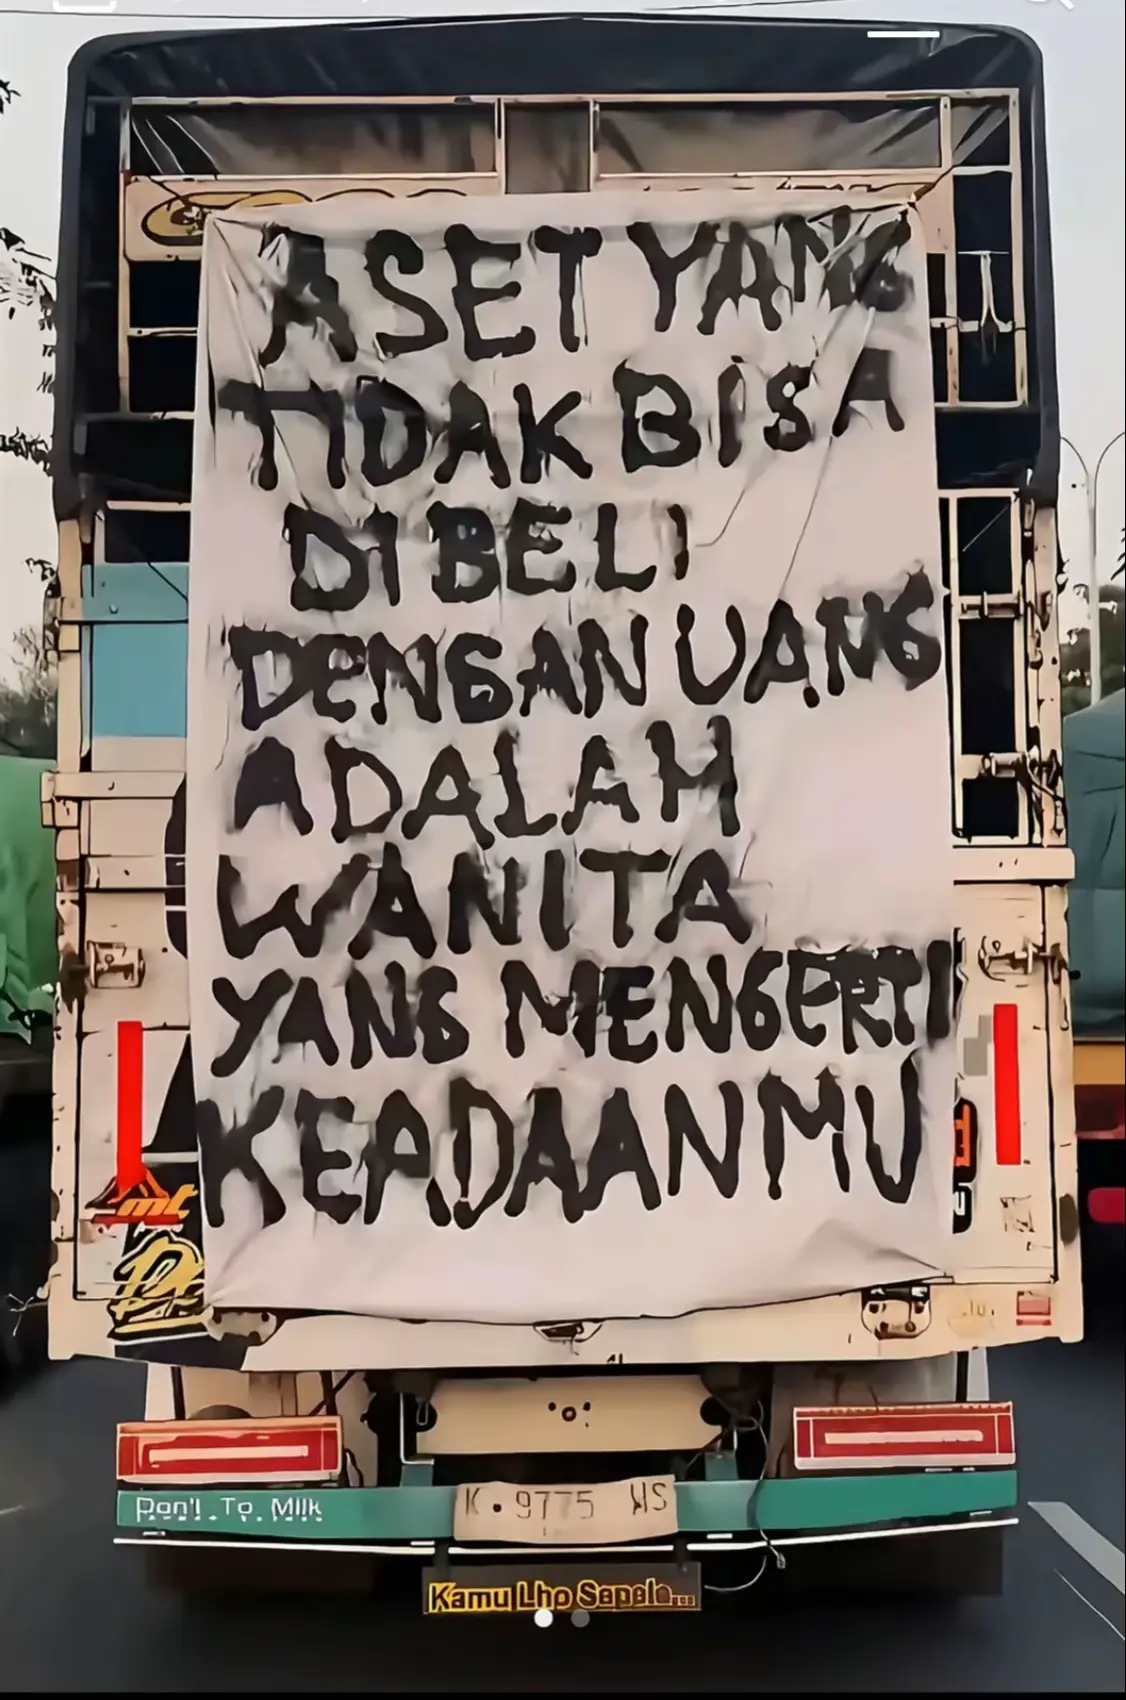 ASET YANG
TIDAK BISA
DI BELI
DENGAN UANG
ADALAH
WANITA
YANG MENGERTI
KEADAANMU
mt
Don't To Milk
K • 9775 WS
Kamu Lho Sepele...